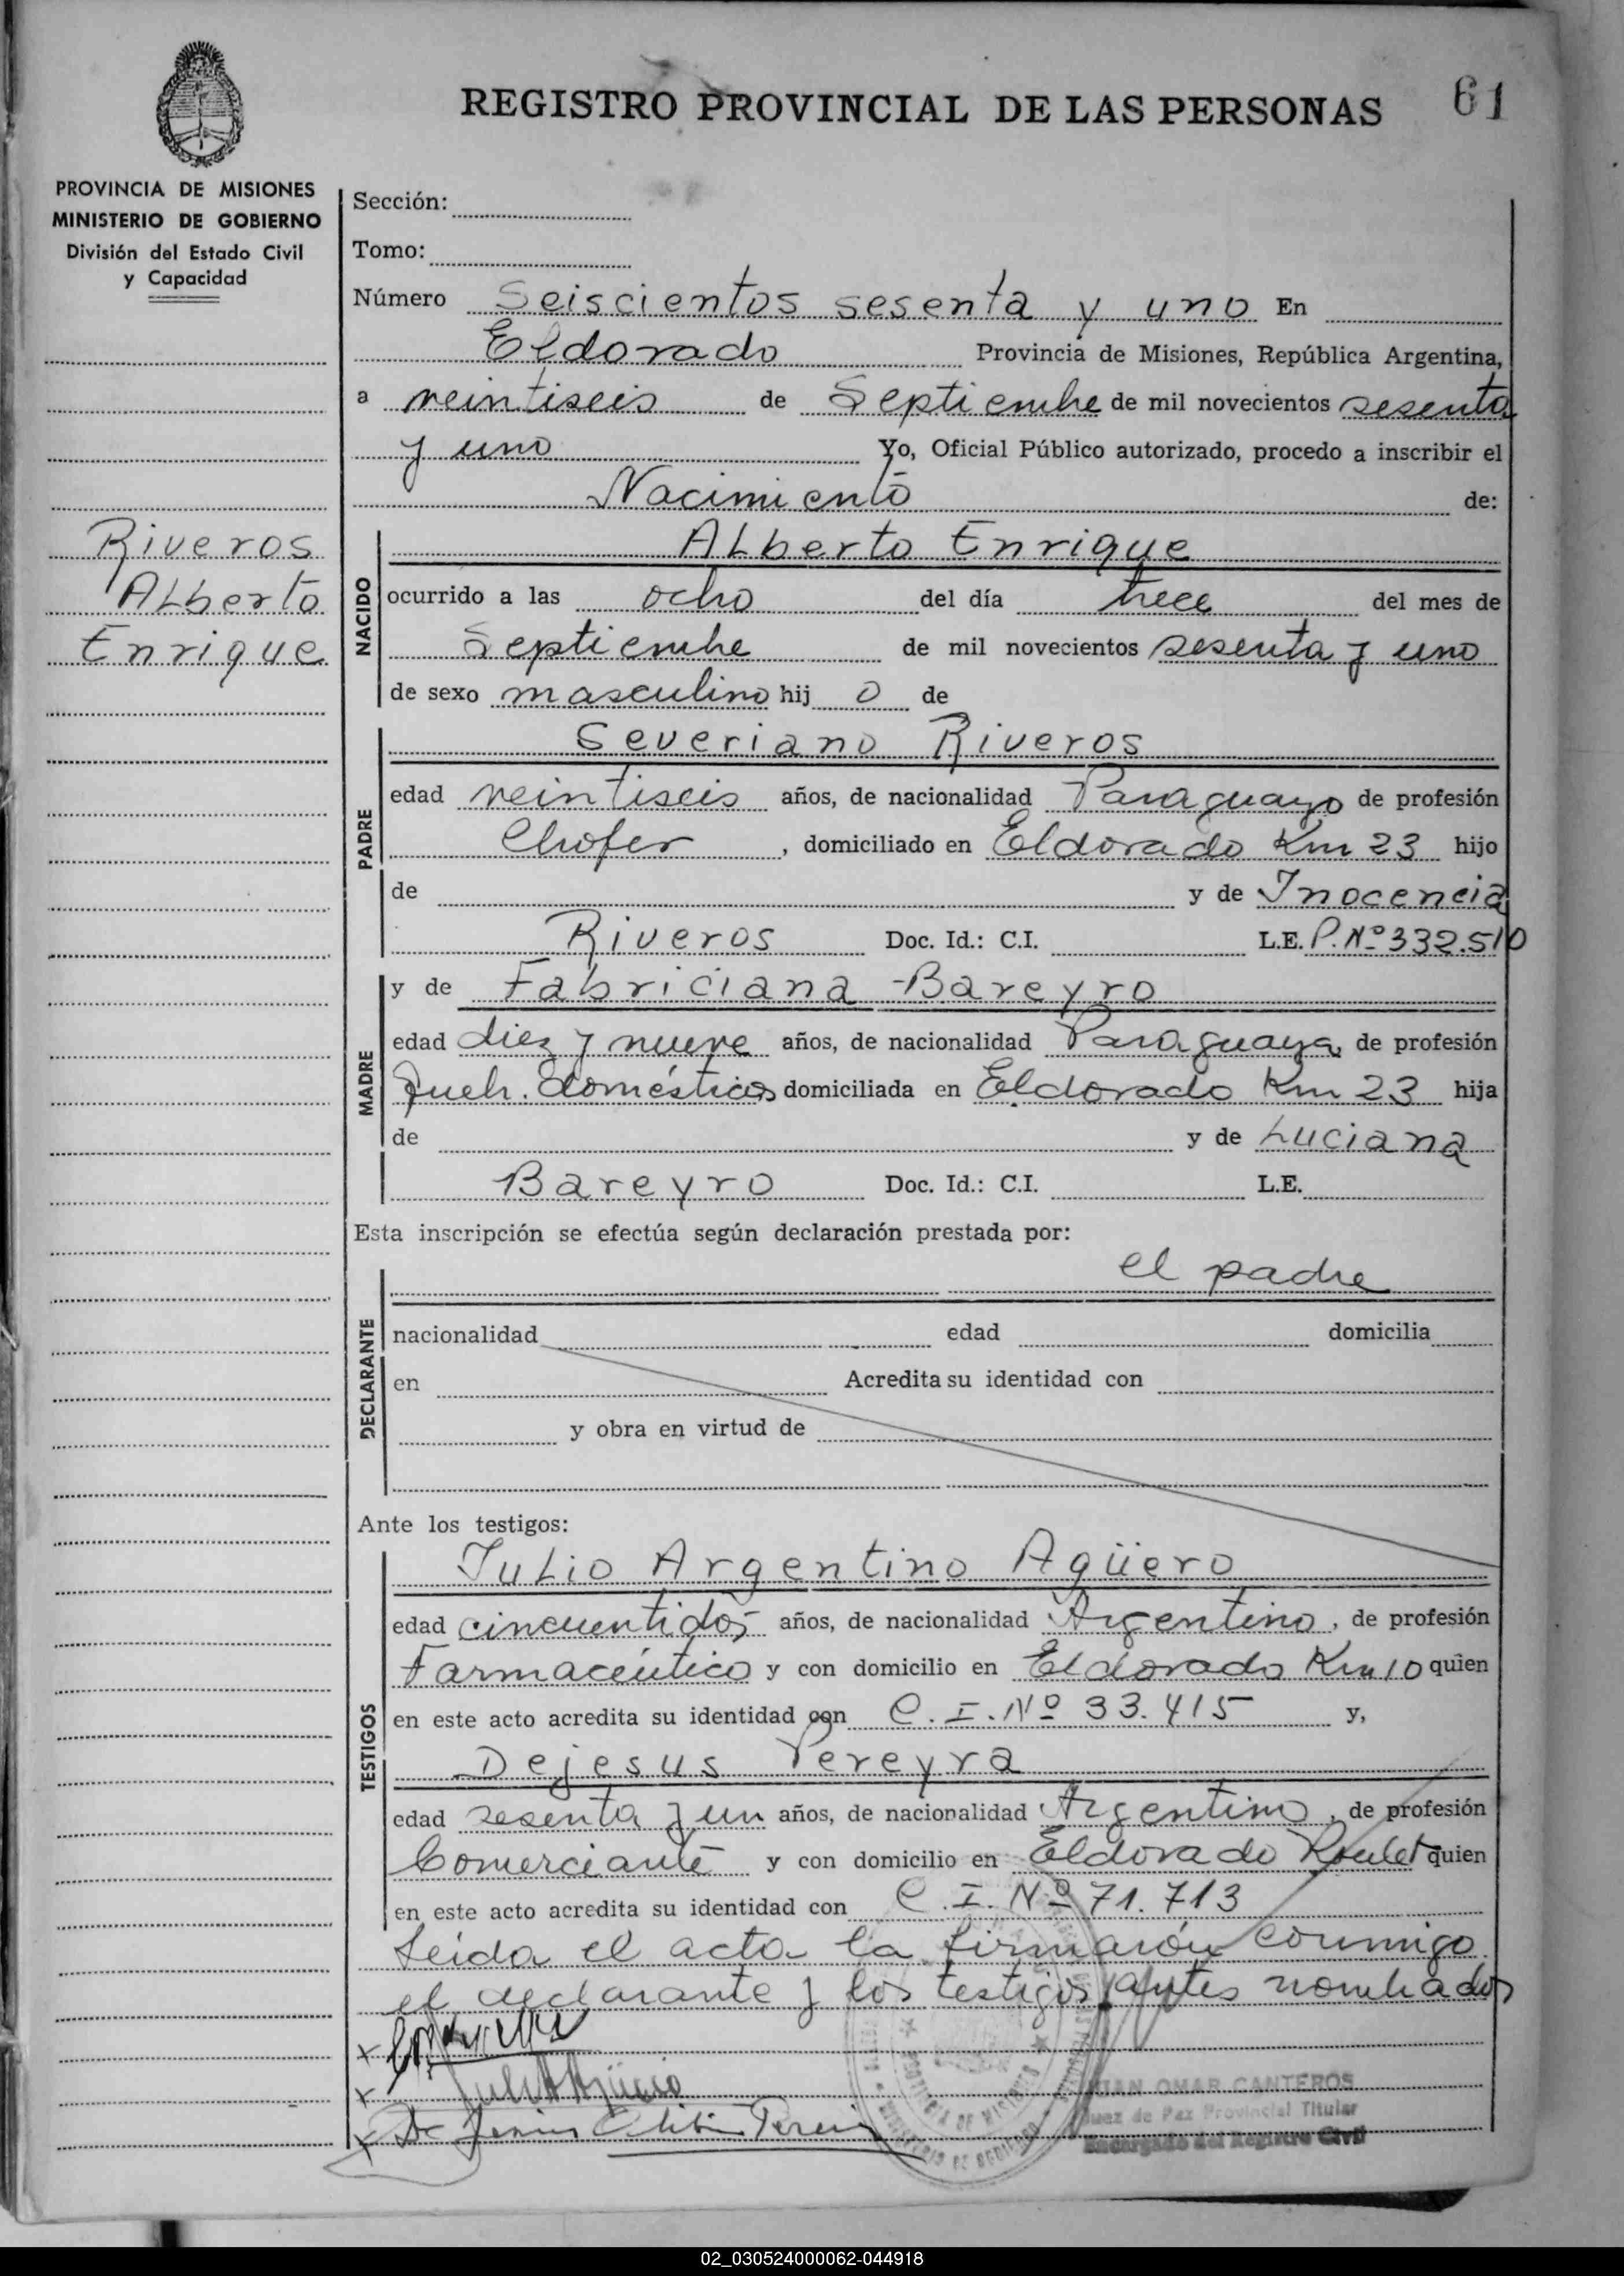 REGISTRO PROVINCIAL DE LAS PERSONAS 61
PROVINCIA DE MISIONES
MINISTERIO DE GOBIERNO
División del Estado Civil
y Capacidad
Riveros
Alberto
Enrique
Sección:
Tomo:
Número Seiscientos sesenta y uno En
Eldorado Provincia de Misiones, República Argentina,
a veintiseis de Septiembre de mil novecientos sesenta
y uno Yo, Oficial Público autorizado, procedo a inscribir el
Nacimiento de:
NACIDO
Alberto Enrique
ocurrido a las ocho del día trece del mes de
Septiembre de mil novecientos sesenta y uno
de sexo masculino hij o de
PADRE
Severiano Riveros
edad veintiseis años, de nacionalidad Paraguayo de profesión
Chofer, domiciliado en Eldorado Km 23 hijo
de y de Inocencia
Riveros Doc. Id.: C.I. L.E. P. Nº 332.510
MADRE
y de Fabriciana Bareyro
edad diez y nueve años, de nacionalidad Paraguaya, de profesión
Queh. domésticos domiciliada en Eldorado Km 23 hija
de y de Luciana
Bareyro Doc. Id.: C.I. L.E.
Esta inscripción se efectúa según declaración prestada por:
DECLARANTE
el padre
nacionalidad edad domicilia
en Acredita su identidad con
y obra en virtud de
Ante los testigos:
TESTIGOS
Julio Argentino Agüero
edad cincuentidós años, de nacionalidad Argentino, de profesión
Farmacéutico y con domicilio en Eldorado Km 10 quien
en este acto acredita su identidad con C.I. Nº 33.415 y,
Dejesus Pereyra
edad sesenta y un años, de nacionalidad Argentino, de profesión
Comerciante y con domicilio en Eldorado quien
en este acto acredita su identidad con C.I. Nº 71.713
Leida el acta la firmarón conmigo
el declarante y los testigos antes nombrados
PROVINCIA DE MISIONES
JUAN OMAR CANTEROS
Juez de Paz Provincial Titular
Encargado del Registro Civil
02_030524000062-044918